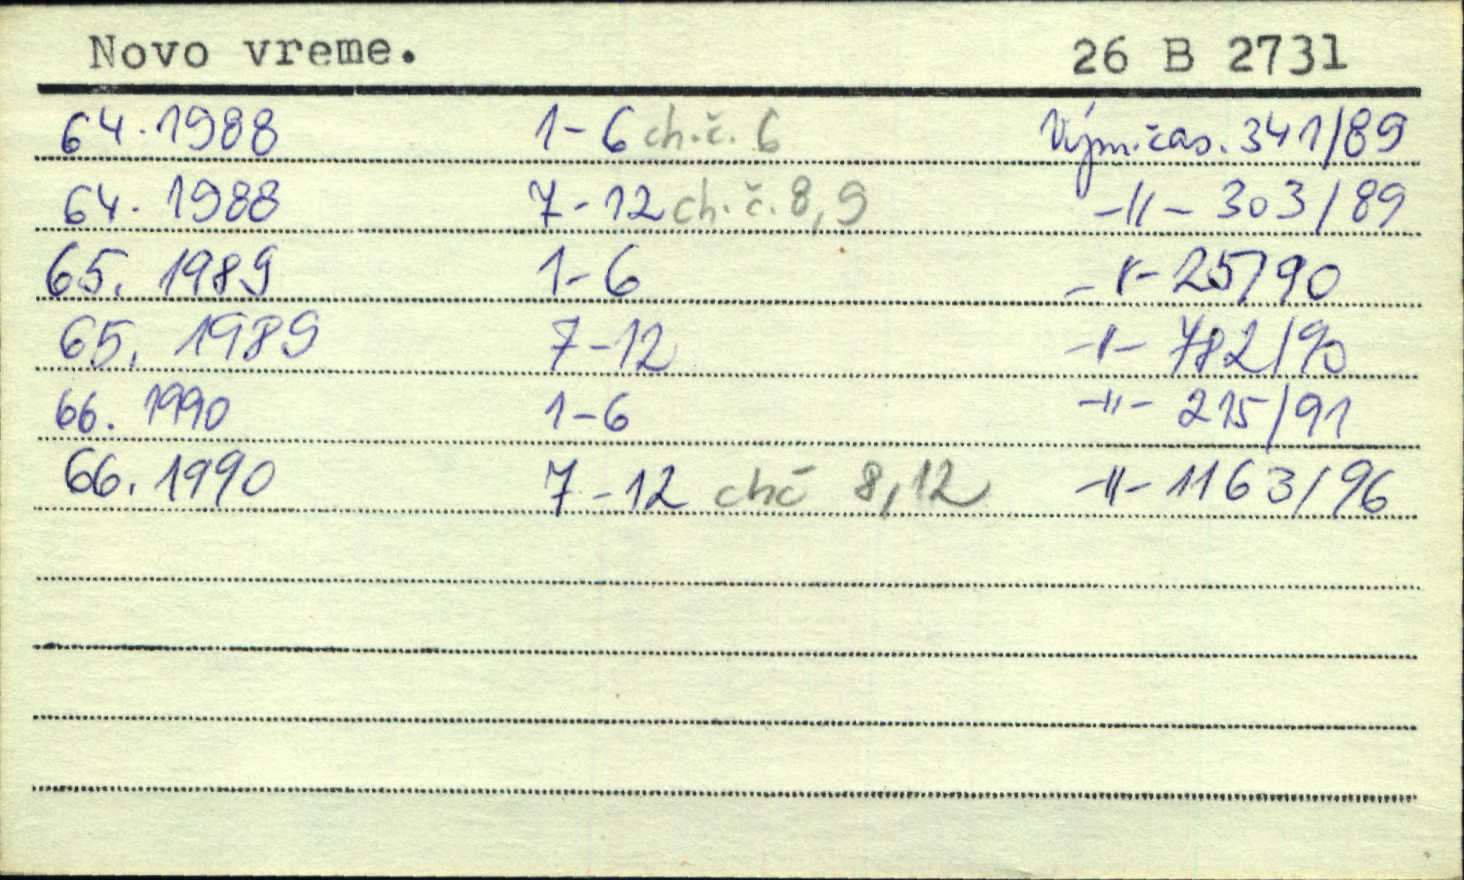 Novo vreme. 26 B 2731
64. 1988 1-6 ch.č. 6 Vým.čas. 341/89
64. 1988 7-12 ch.č. 8,9 -||- 303/89
65. 1989 1-6 -||- 25/90
65. 1989 7-12 -||- 782/90
66. 1990 1-6 -||- 215/91
66. 1990 7-12 chč 8,12 -||- 1163/96